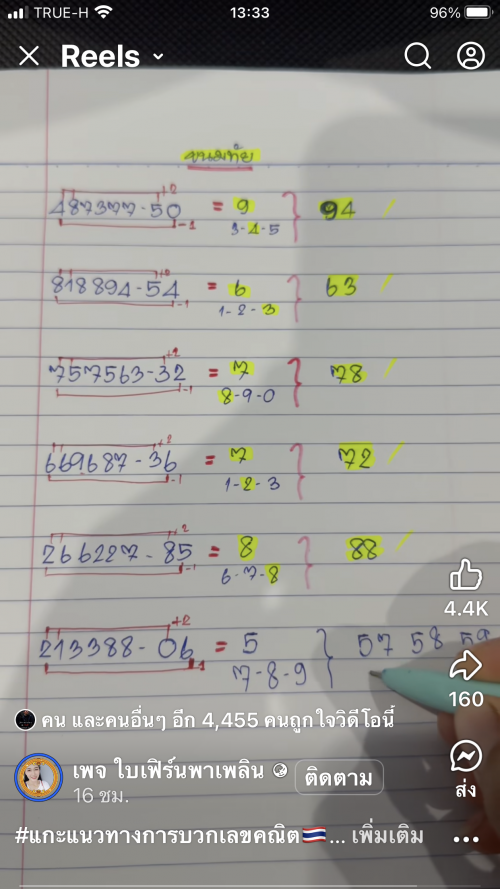 TRUE-H 13:33 96%
Reels
ขนมทัย
+2
487377-50 = 9 } 94
-1 3-4-5
818894-54 = 6 } 63
-1 1-2-3
+2
757563-32 = 7 } 78
-1 8-9-0
+2
669687-36 = 7 } 72
-1 1-2-3
2
266227-85 = 8 } 88
-1 6-7-8
+2
213388-06 = 5 } 57 58 59
1 7-8-9
4.4K
160
คน และคนอื่นๆ อีก 4,455 คนถูกใจวิดีโอนี้
เพจ ใบเฟิร์นพาเพลิน ติดตาม
16 ชม.
ส่ง
#แกะแนวทางการบวกเลขคณิต🇹🇭... เพิ่มเติม